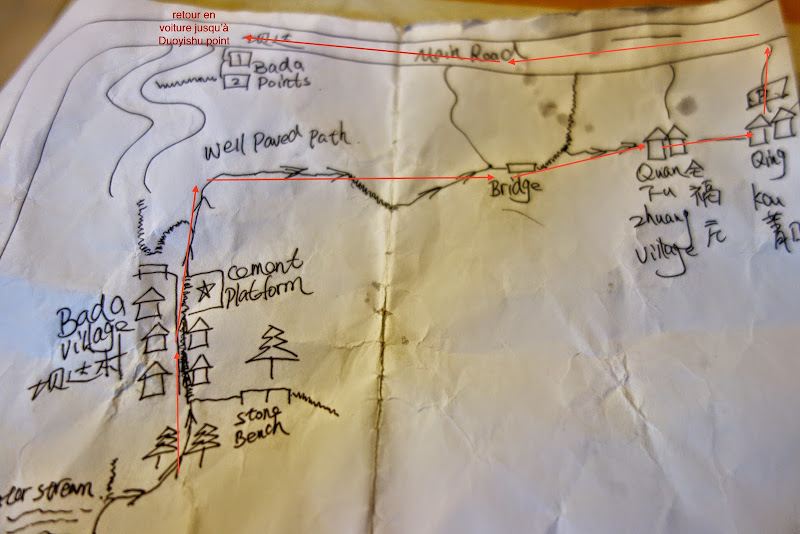 retour en
voiture jusqu'à
Duoyishu point
坝达
Main Road
1
2
Bada
Points
Well Paved Path
Bridge
Quan
Fu
zhuang
Village
全
福
元
Qing
kou
菁口
cement
Platform
Bada
Village
坝达村
stone
Bench
stream